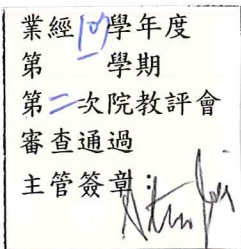 業經107學年度
第一學期
第二次院教評會
審查通過
主管簽章：